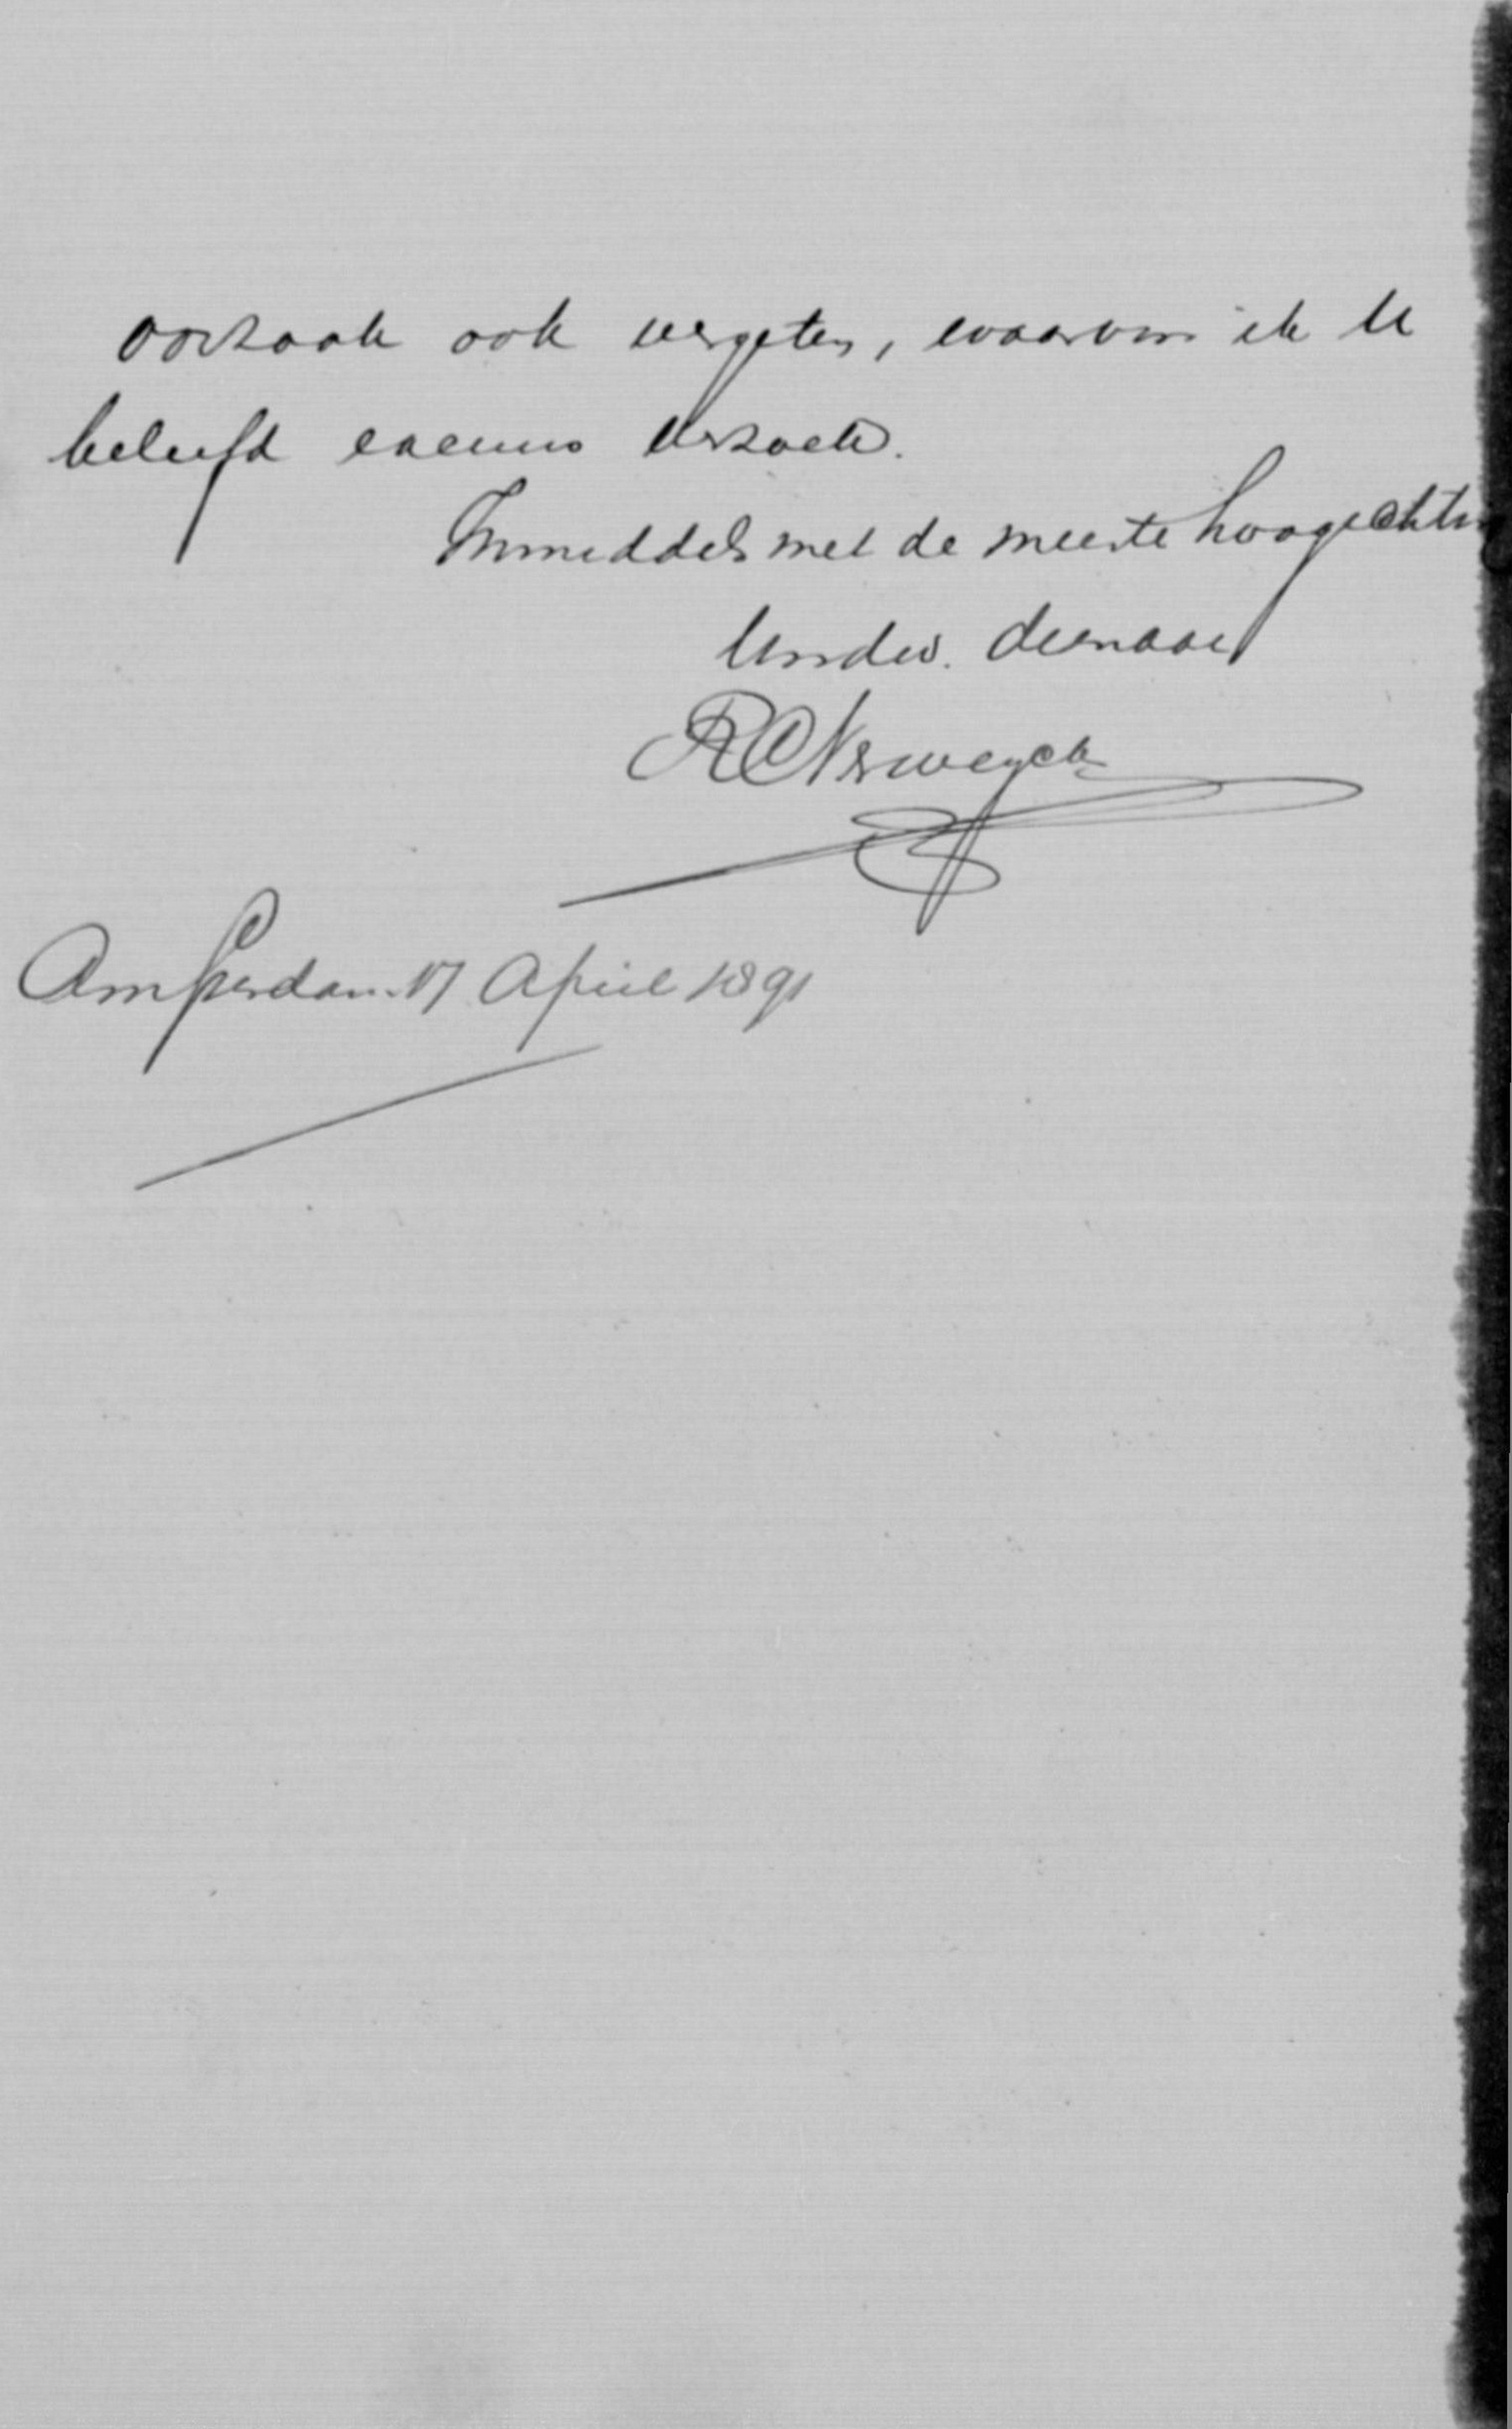 oorzaak ook vergeten, waarvoor ik U
beleefd excuus verzoek.
Inmiddels met de meeste hoogachting
Uwdw. dienaar
RC Verweyck
Amsterdam 17 April 1891